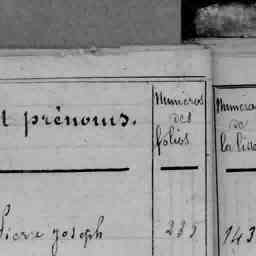 t prénoms.
Numéros
des
folios
Numéros
de
la liste
Pierre Joseph 233 143